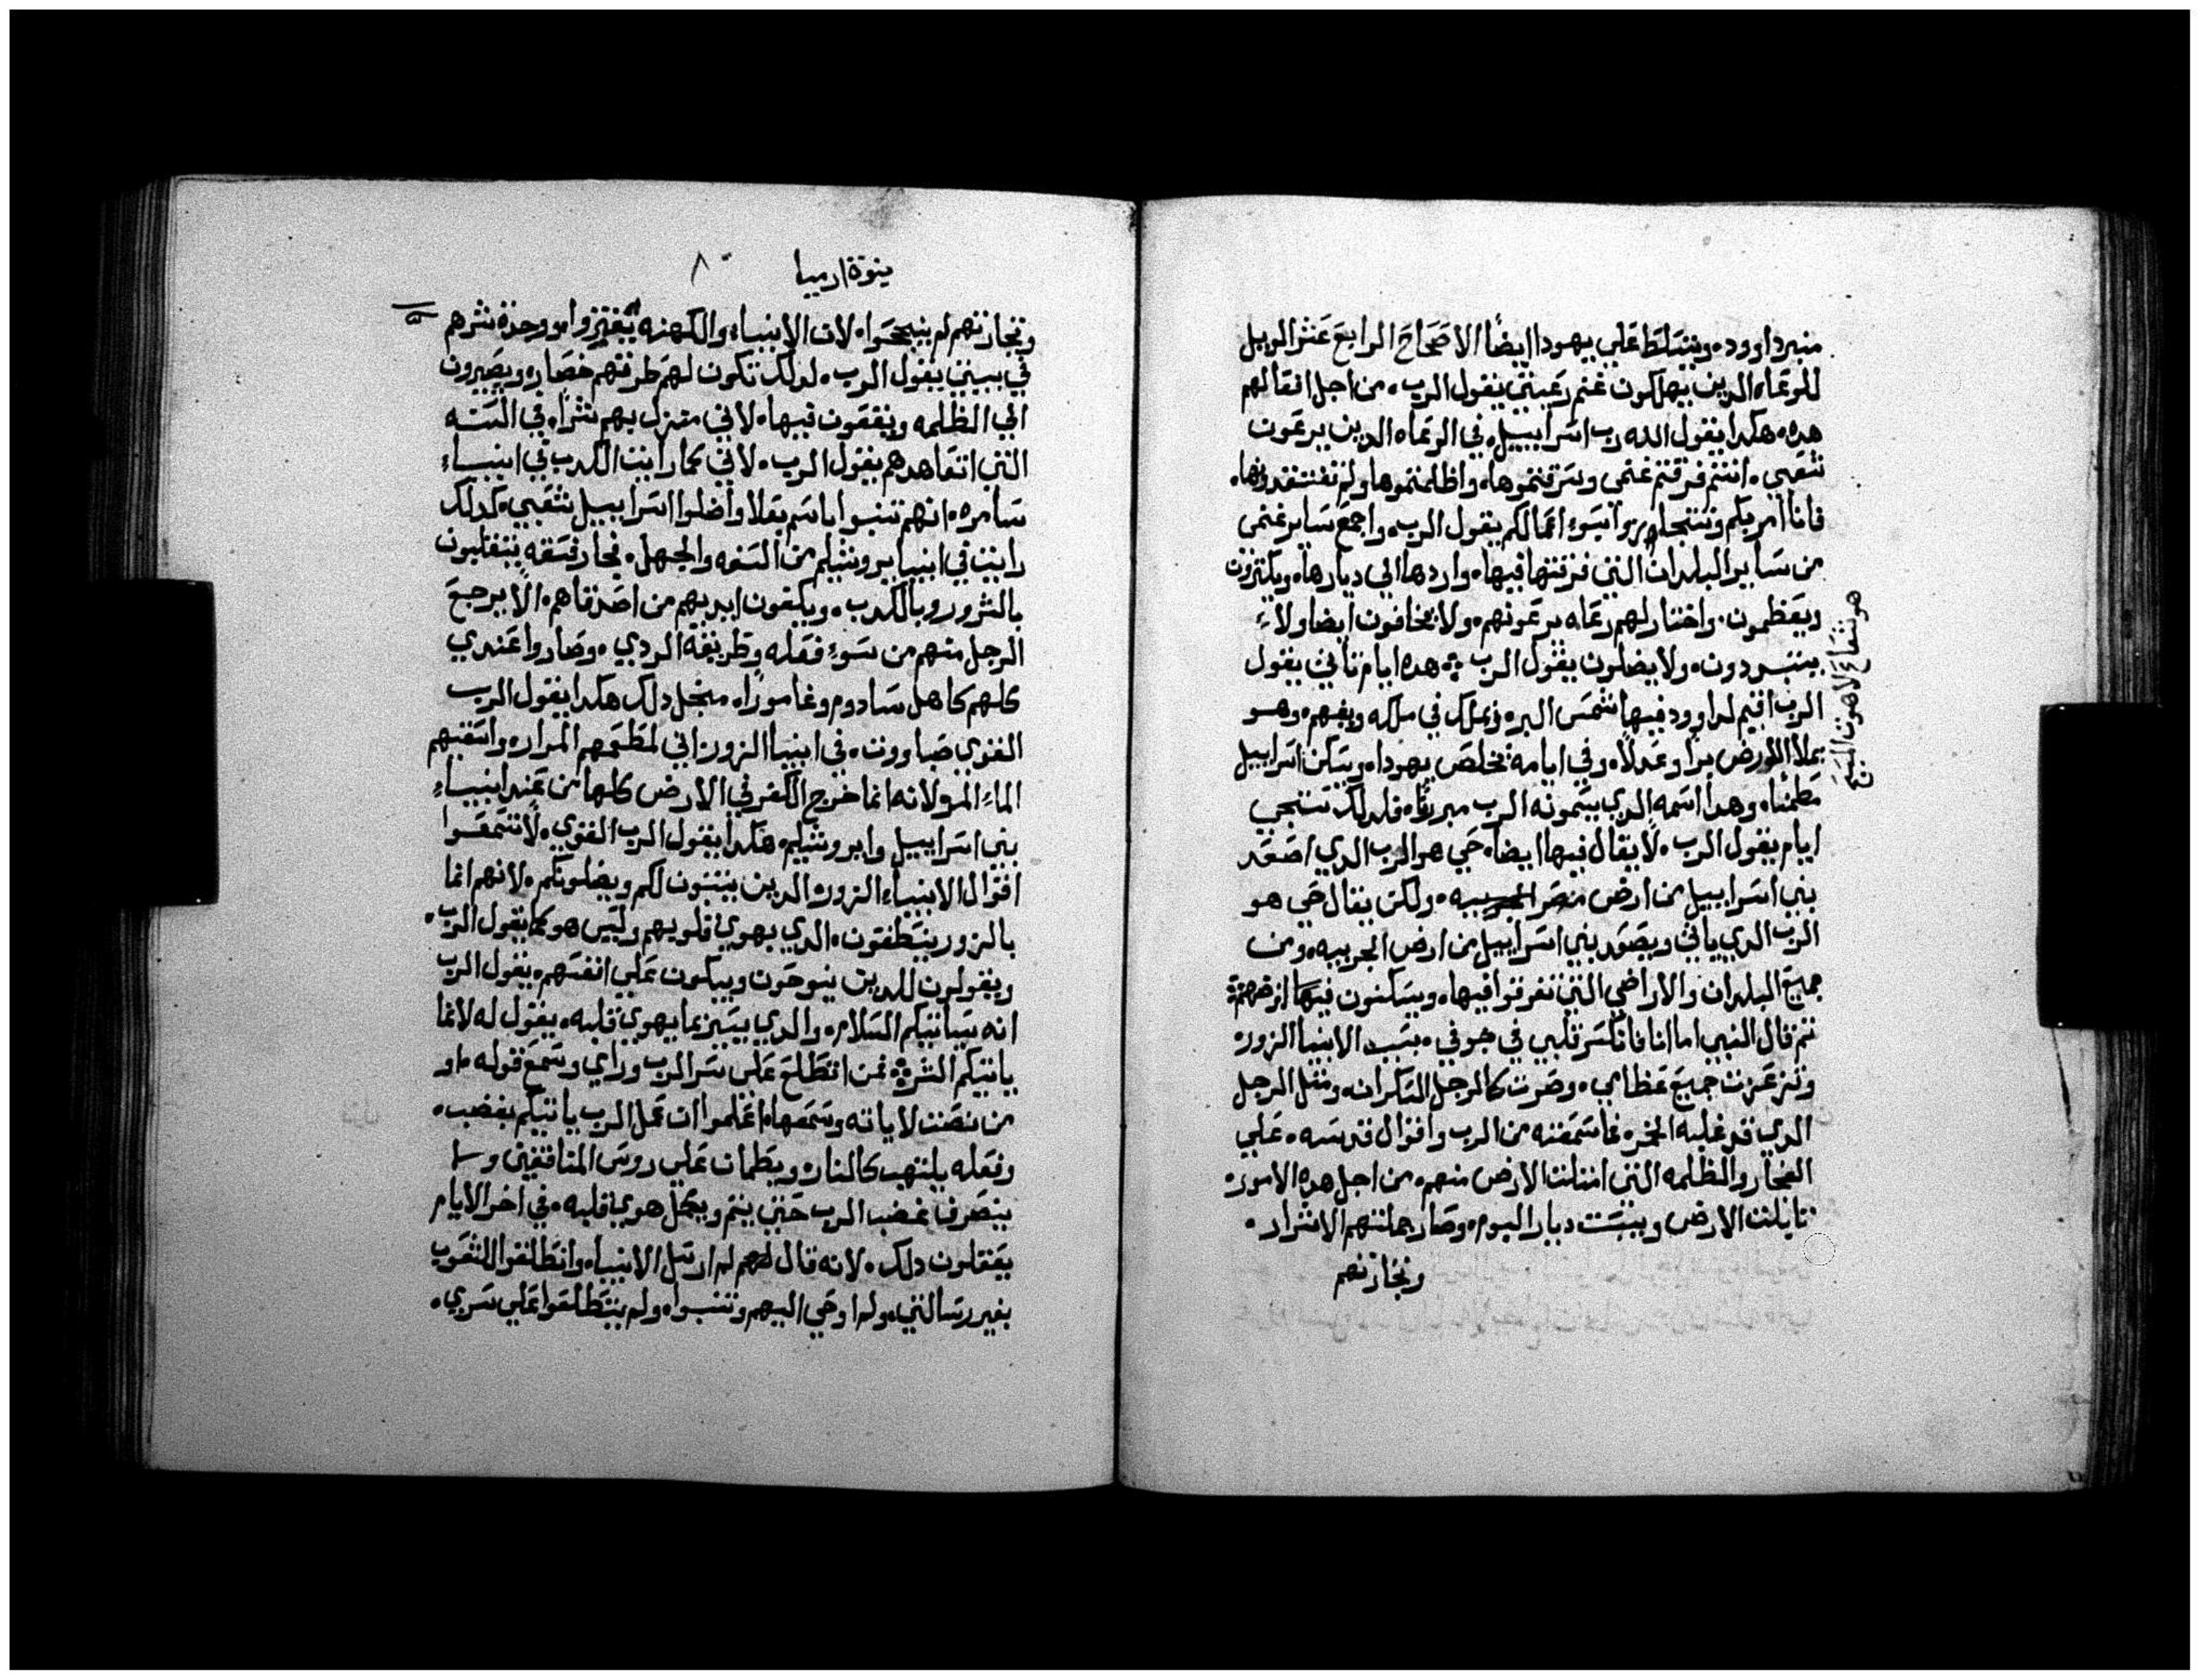 منبر داوود. ويتسلط علي يهودا ايضًا الاصحاح الرابع عشر الويل
للرعاه الدين يهلكون غنم رعيتي يقول الرب. من اجل افعالهم
هده. هكدا يقول الله رب اسراييل. في الرعاه الدين يرعون
شعبي. انتم فرقتم غنمي وسرقتموها. واظلمتموها ولم تفتقدوها.
فانا امر بكم وسوء اعمالكم يقول الرب. واجمع ساير غنمي
من ساير البلدان التي فرقتها فيها. واردها الي ديارها. ويكترون
ويعظمون. واختار لهم رعاه يرعونهم. ولا يخافون ايضا ولاء
يتبددون. ولا يضلون يقول الرب ܀ هده ايام تاتي يقول
الرب اقيم لداوود فيها شمس البر. ويملك في ملكه ويفهم. وهو
يملا الارض برا وعدلا. وفي ايامه يخلص يهودا. ويسكن اسراييل
مطمنا. وهدا اسمه الدي يسمونه الرب فلدلك ستجي
ايام يقول الرب. لا يقال فيها ايضا. حي هو الرب الدي اصعد
بني اسراييل من ارض مصر. ولكن يقال حي هو
الرب الدي ياتي ويصعد بني اسراييل من ارض الجربيه. ومن
جميع البلدان والاراضي التي تفرقوا فيها. ويسكنون فيها ارضهم܀
تم قال النبي اما انا فانكسر قلبي في جوفي. بسبب الانبيا الزور.
وتزعزعت جميع عظامي. وصرت كالرجل السكران. ومتل الرجل
الدي قد غلبه الخمر. مما سمعته من الرب واقوال قدسه. علي
الفجار والظلمه التي امتلت الارض منهم. من اجل هده الامور.
الارض ويبست ديار اليوم. وصار جملتهم الاشرار.
وتجارتهم
هو شعاع
نبوة ارميا
وتجارتهم لم ينجحوا. لان الانبياء والكهنه ووجدة شرهم
في بيتي يقول الرب. لدلك تكون لهم طرقهم ويصيرون
الي الظلمه ويقعون فيها. لاني منزل بهم شرا. في السنه
التي اتعاهدهم يقول الرب. لاني كما رايت الكدب في انبياء
سامره. انهم تنبوا باسم بعلا واضلوا اسراييل شعبي. كدلك
رايت في انبيا يروشليم من السفه والجهل. فجار فسقه يتقلبون
بالشرور وبالكدب. ويكفون ايديهم من اصدقاهم. الا يرجع
الرجل منهم من سوء فعله وطريقه الردي. وصاروا عندي
كلهم كاهل سادوم وغامورا. منجل دلك هكدا يقول الرب
القوي صاووت. في انبيا الزور اني لمطعمهم المرار. واسقيهم
الماء المر ولانه انما خرج الكفر في الارض كلها من عند انبياء
بني اسراييل وايروشليم. هكدا يقول الرب القوي. لا تسمعوا
اقوال الانبياء الزور. الدين يتنبون لكم ويضلونكم. لانهم انما
بالزور ينطقون. الدي يهوي قلوبهم وليس هو كما يقول الرب.
ويقولون للدين ينوحون ويبكون علي انفسهم. يقول الرب
انه سياتيكم السلام. والدي يسير بما يهوي قلبه. يقول له لا انما
ياتيكم الشر܀ فمن اتطلع علي سر الرب وراي وسمع قوله. او
من نصت لاياته وسمعها. اعلموا ان عمل الرب ياتيكم بغضب.
وفعله يلتهب كالنار. علي روس المنافقين ولا
ينصرف غضب الرب حتي يتم ويكمل هوي قلبه. في اخر الايام
يعقلون دلك. لانه قال لهم لم ارسل الانبيا. وانطلقوا للشعوب
بغير رسالتي. ولم اوحي اليهم وتنبوا. ولم يتطلعوا علي سري.